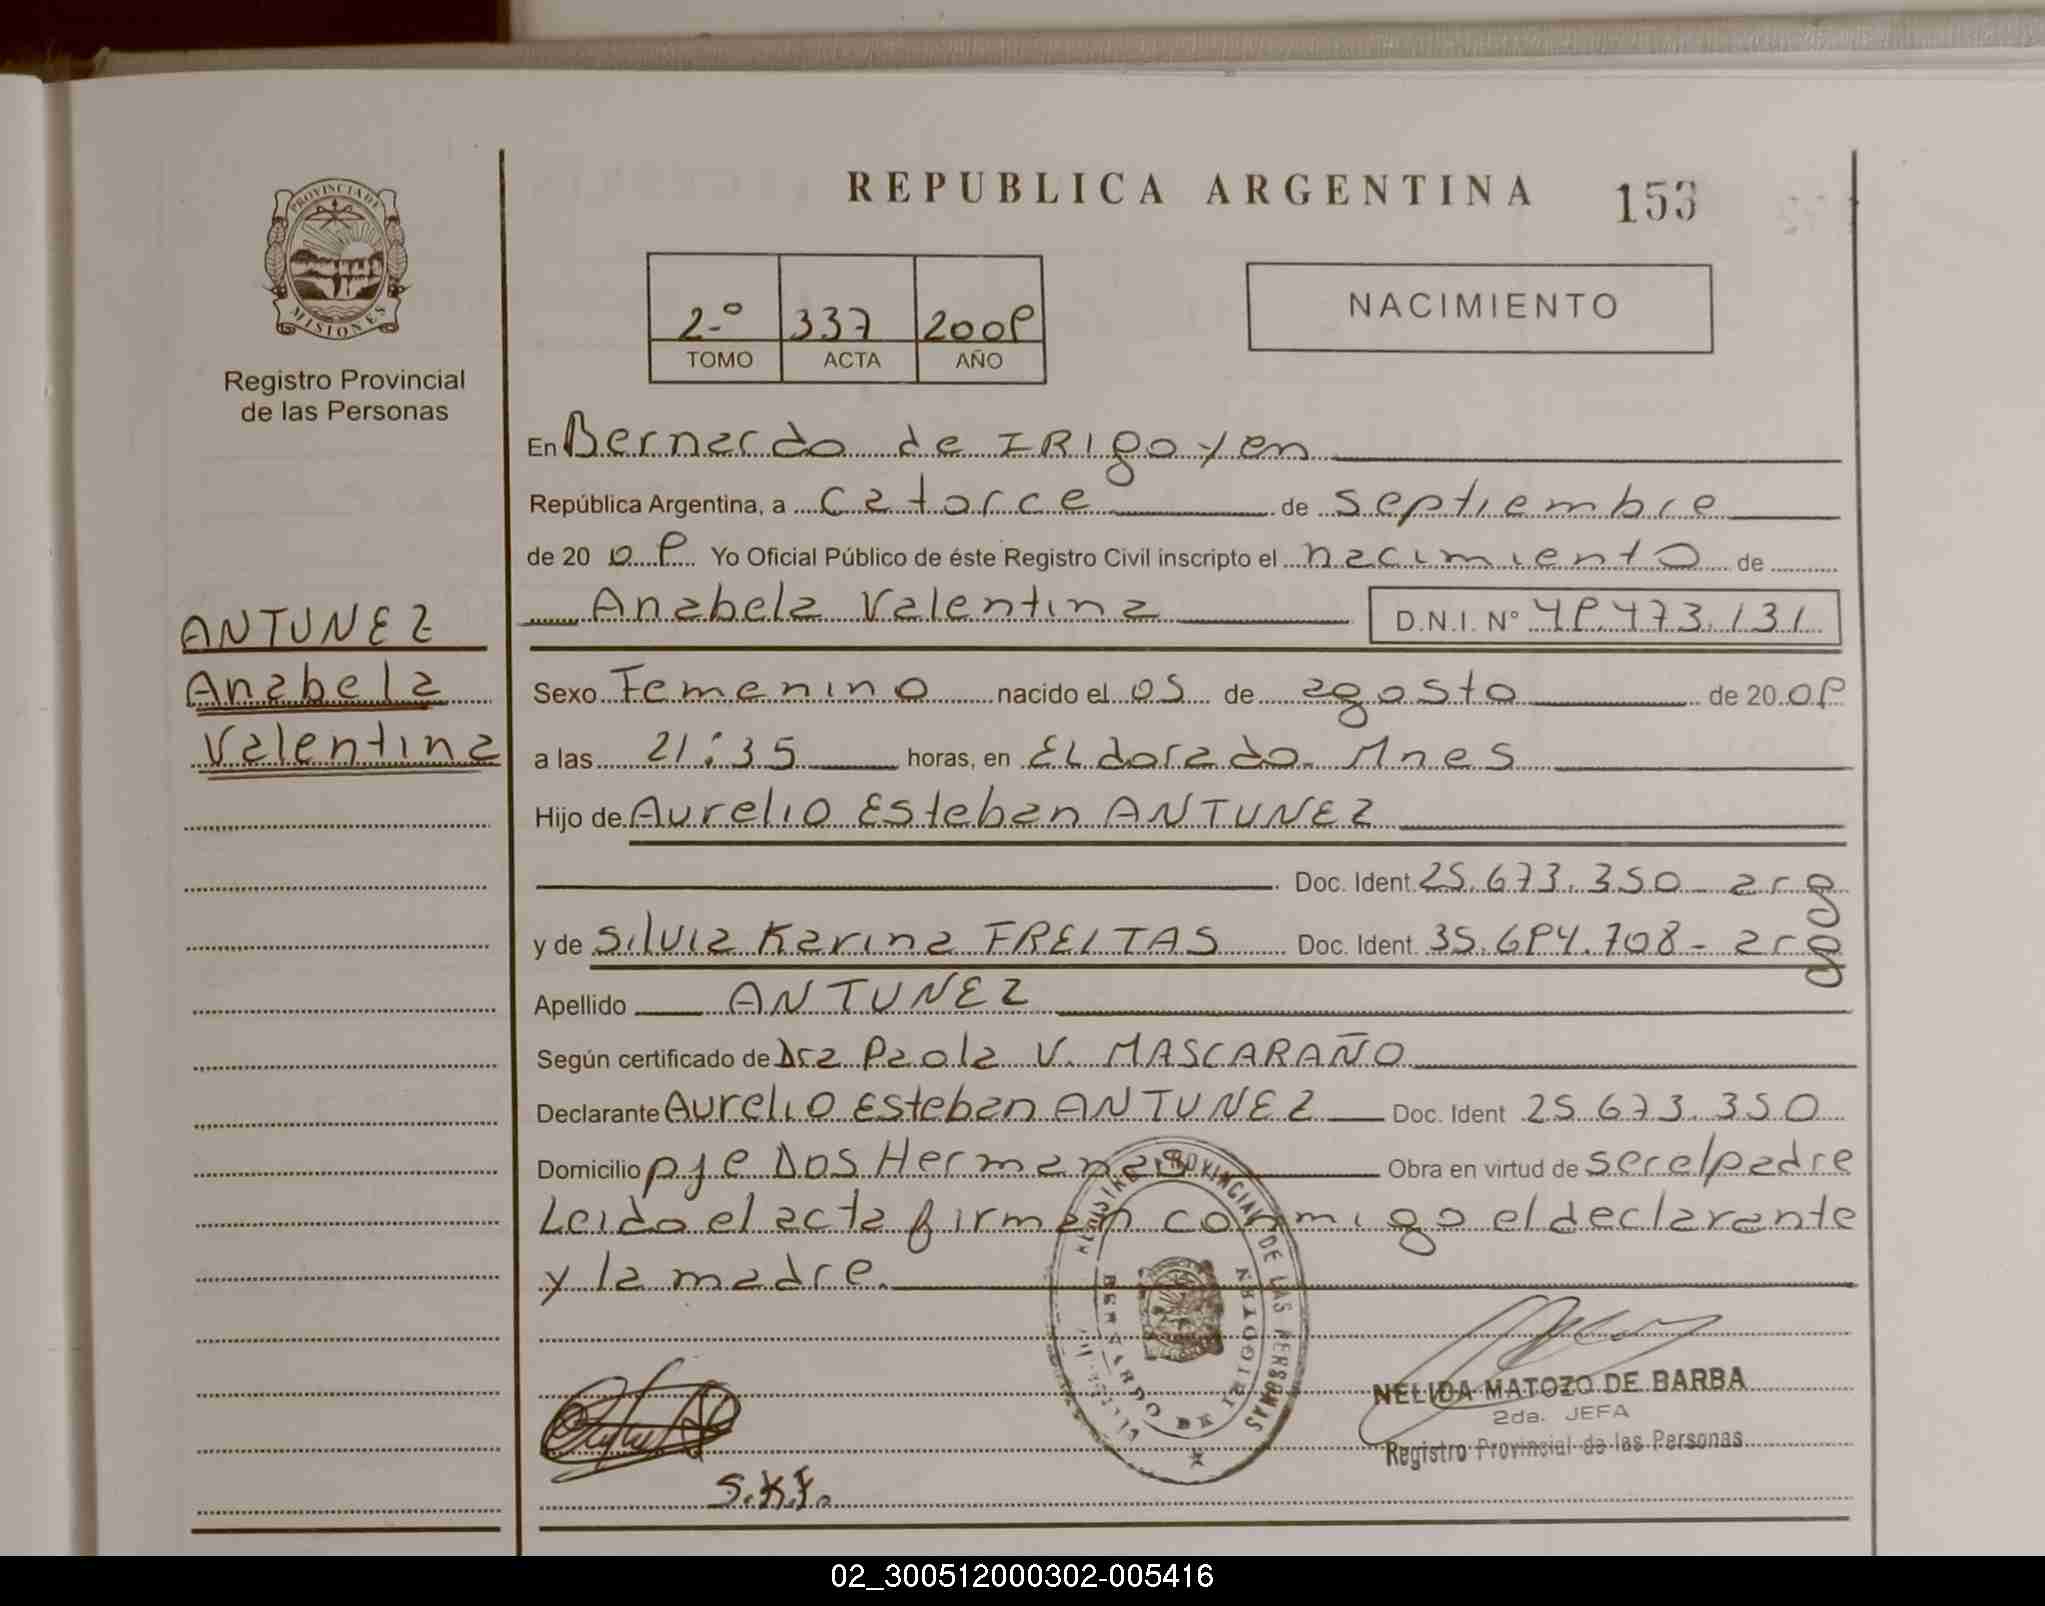 REPUBLICA ARGENTINA 153
PROVINCIA DE MISIONES
Registro Provincial
de las Personas
2º 337 2009
TOMO ACTA AÑO
NACIMIENTO
En Bernardo de IRIgoyen
República Argentina, a catorce de septiembre
de 20 09 Yo Oficial Público de éste Registro Civil inscripto el nacimiento de
Anabela Valentina D.N.I. Nº 49.473.131
ANTUNEZ
Anabela
Valentina
Sexo Femenino nacido el 05 de agosto de 20 09
a las 21:35 horas, en ELdorado. Mnes
Hijo de Aurelio Esteban ANTUNEZ
Doc. Ident. 25.673.350 arg
y de Silvia Karina FREITAS Doc. Ident. 35.694.708- arg
Apellido ANTUNEZ
Según certificado de Dra Paola V. MASCARAÑO
Declarante Aurelio Esteban ANTUNEZ Doc. Ident 25.673.350
Domicilio pje Dos Hermanas Obra en virtud de ser el padre
Leido el acta firman conmigo el declarante
y la madre.
REGISTRO PROVINCIAL DE LAS PERSONAS
BERNARDO DE IRIGOYEN
NELIDA MATOZO DE BARBA
2da. JEFA
Registro Provincial de las Personas
S.K.F.
02_300512000302-005416